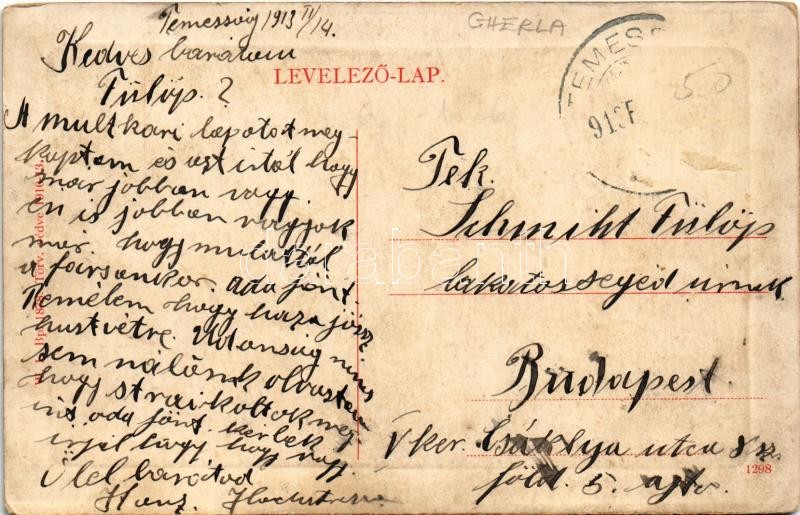 Temesvig 1913 II/14.
GHERLA
Kedves barátom
Fülöp. ?
LEVELEZŐ-LAP.
TEMES
913F
50
A multkari lapotost meg
kaptam és ast irtál hogy
már jobban vagy.
én is jobban vagyok
már. hogy mulattál
a farsankor. oda jönt.
Remélem hogy haza jössz
hustvétre. Udonság nincs
sem nálánk olvastam
hogy straikoltok meg
ins oda jönt. kérlek
irjál hogy hogy vagy.
Ölel barátod
Hanz.
Tek.
Schmiht Fülöp
lakatossegéd urnak
Budapest.
V ker. Csáklya utca 8 sz.
föld. 5. ajto.
1298